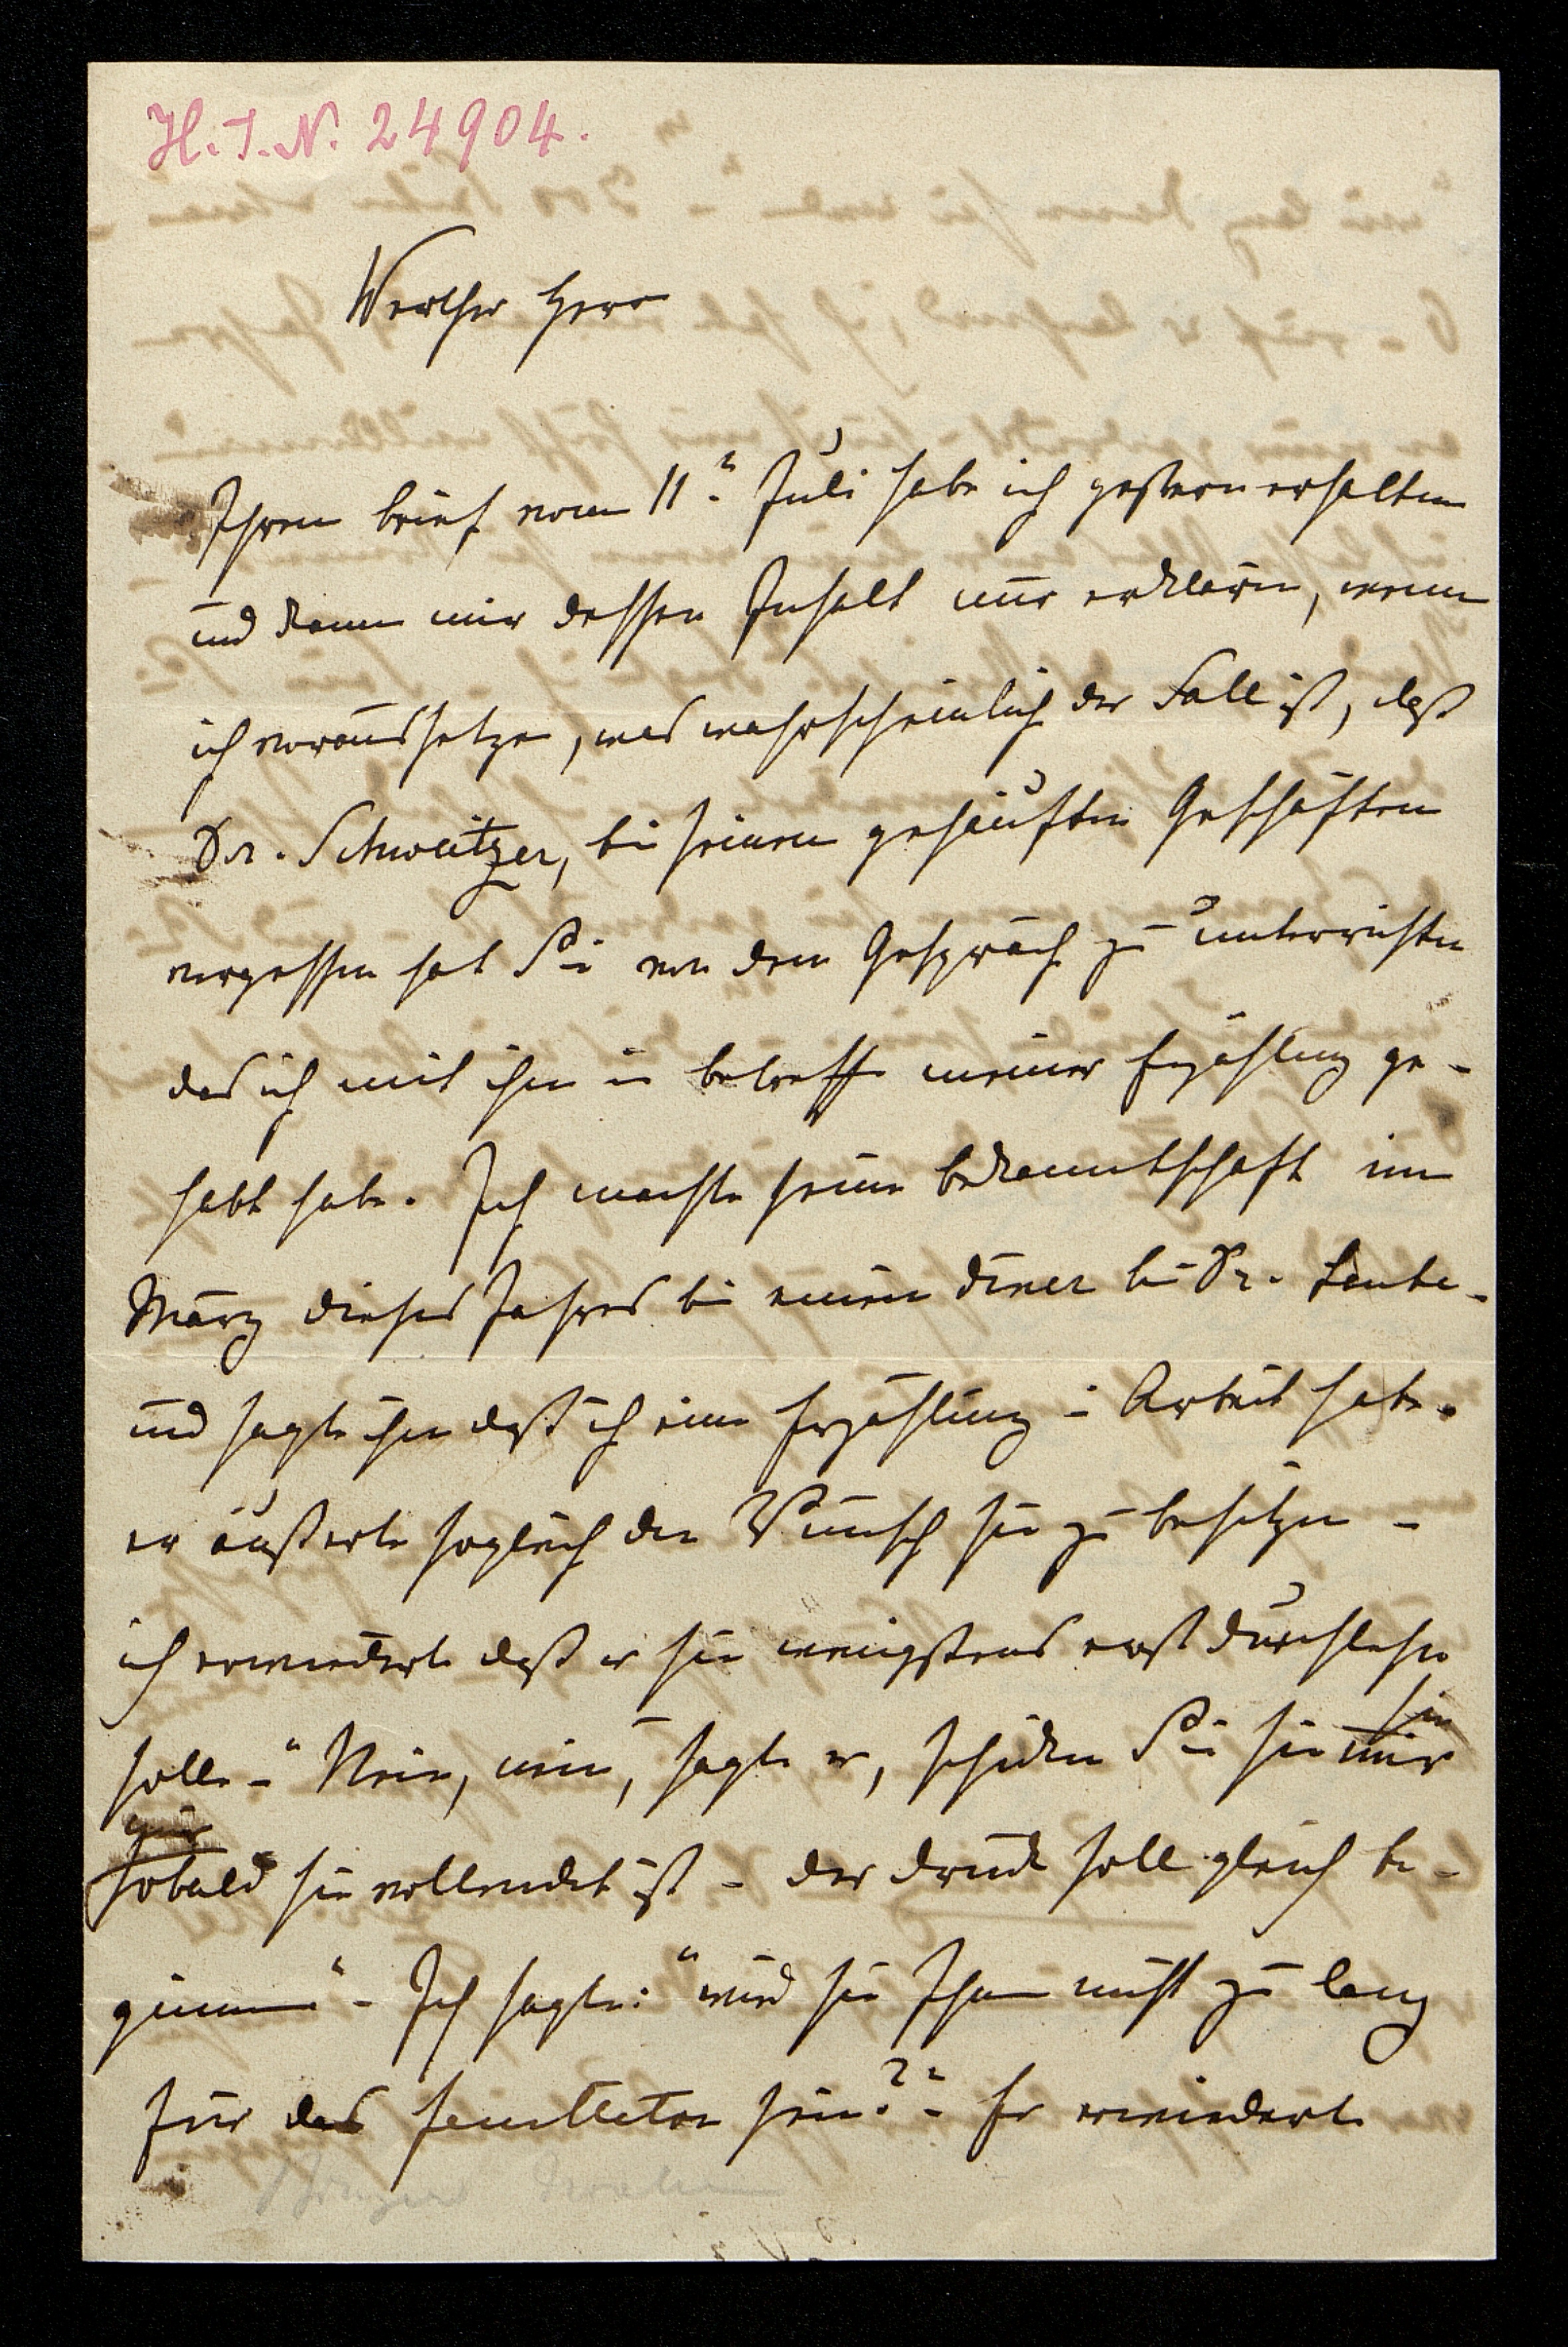 H.I.N. 24904.
Werther Herr
Ihren Brief vom 11n Juli habe ich gestern erhalten
und kann mir dessen Inhalt nur erklären, wenn
ich voraussetze, was wahrscheinlich der Fall ist, daß
Dr. Schweitzer, bei seinen gehäuften Geschäften
vergessen hat Sie von dem Gespräch zu unterrichten
das ich mit ihm in betreff meiner Erzählung ge-
habt habe. Ich machte seine Bekanntschaft im
März dieses Jahres bei einem diner bei Dr.
und sagte ihm daß ich eine Erzählung in Arbeit habe.
er äußerte sogleich den Wunsch sie zu besitzen -
ich erwiederte daß er sie wenigstens erst durchlesen
solle - "Nein, nein, sagte er, schicken Sie sie mir
nur
sobald sie vollendet ist - der Druck soll gleich be-
ginnen" - Ich sagte: "wird sie Ihnen nicht zu lang
für das feuilleton sein?" - Er erwiederte